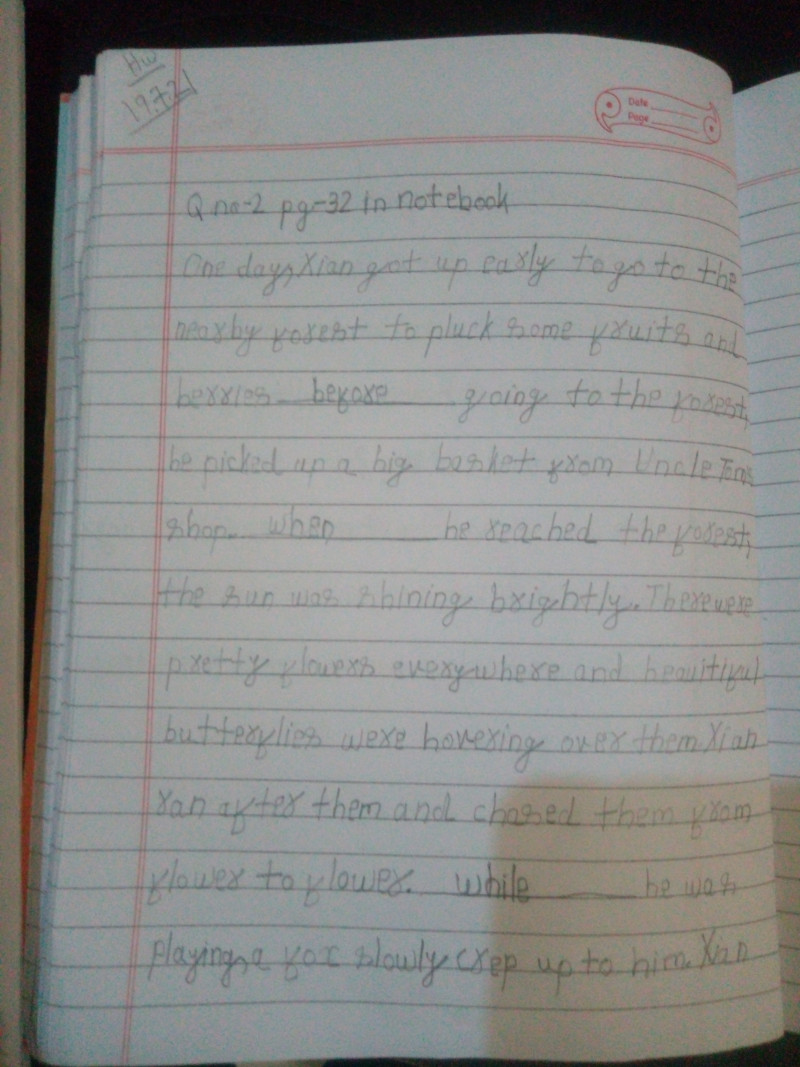 HW
19.7.21
Date
Page
Q no-2 pg-32 in notebook
One day, Xian got up early to go to the
nearby forest to pluck some fruits and
berries before going to the forest,
he picked up a big basket from Uncle Tom's
shop. when he reached the forest,
the sun was shining brightly. There were
pretty flowers everywhere and beauitiful
butterflies were hovering over them Xian
ran after them and chased them from
flower to flower. while he was
playing, a fox slowly crep up to him. Xian